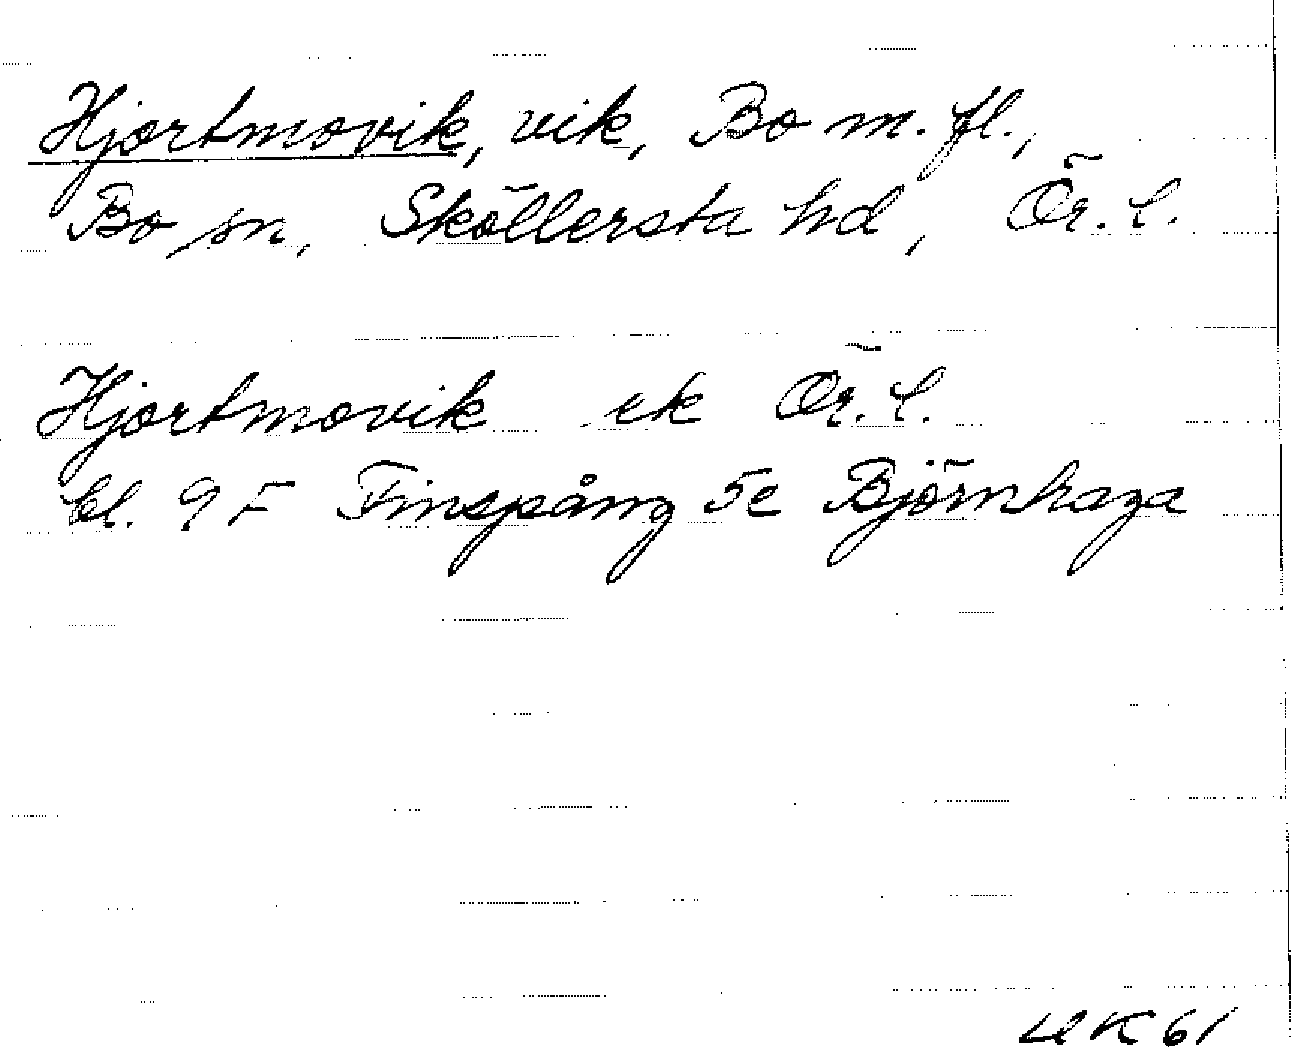 Hjortmovik, vik, Bo m.fl.,
Bo sn, Sköllersta hd, Ör. l.
Hjortmovik ek Ör. l.
bl. 9 F Finspång 5e Björnhaga
UK 61